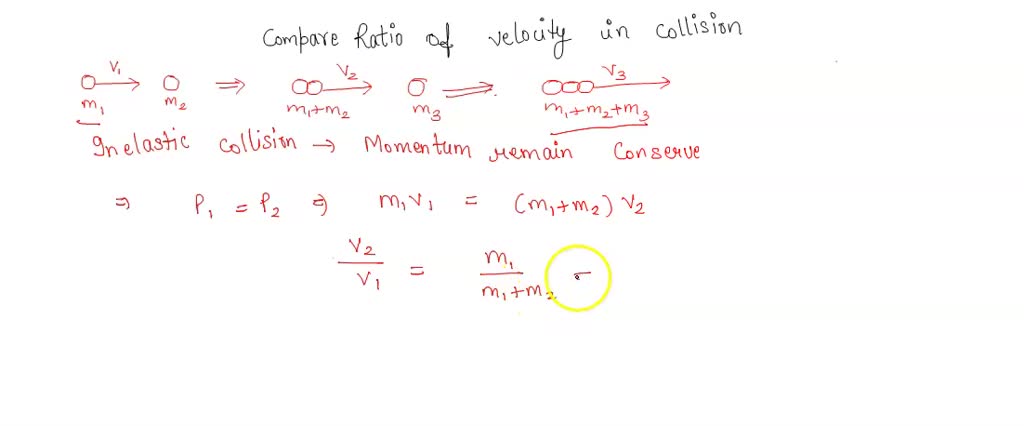 Compare Ratio of velocity in collision
V1 V2 V3
m1 m2 ⇒ m1+m2 m3 ⇒ m1+m2+m3
Inelastic collision → Momentum remain Conserve
⇒ P1 = P2 ⇒ m1V1 = (m1+m2) V2
V2/V1 = m1/m1+m2 -